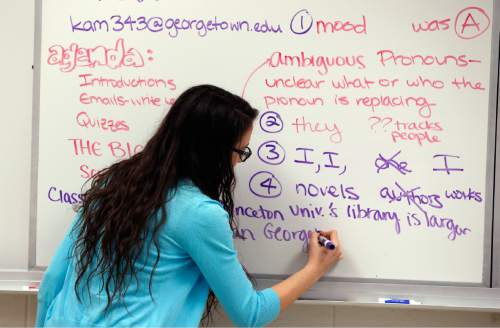 kam343@georgetown.edu ① mood was Ⓐ
agenda:
Introductions
Emails-write
Quizzes
THE
Class
ambiguous Pronouns-
unclear what or who the
pronoun is replacing
② they ?? tracks
people
③ I, I, one I
④ novels authors works
Univ.'s library is larger
Georget